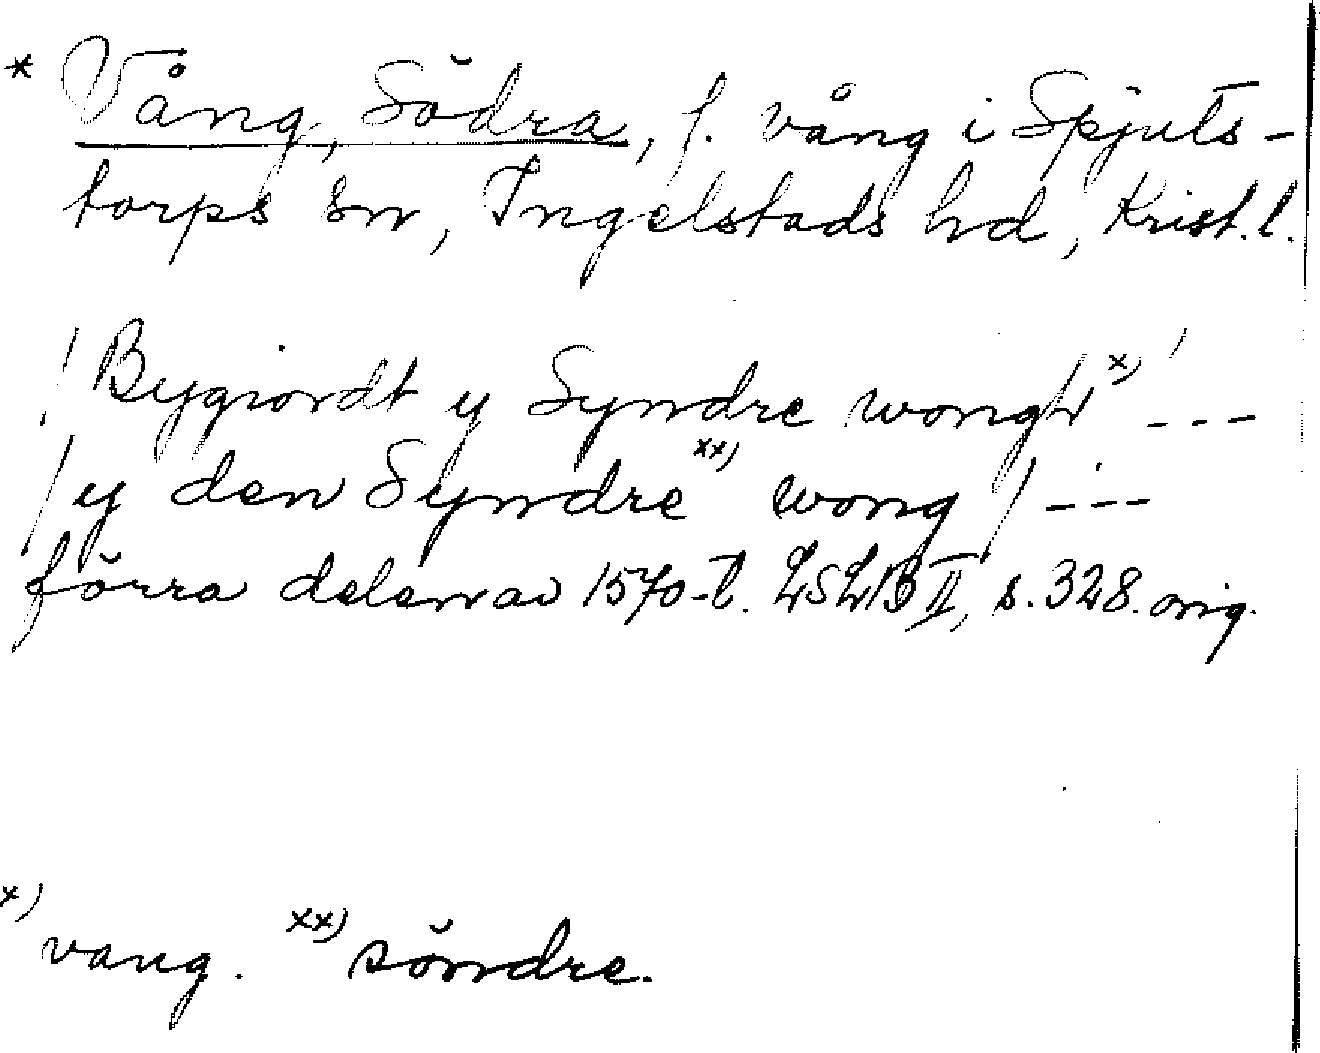 * Vång, Södra, f. vång i Spjuts-
torps sn, Ingelstads hd, Krist. l.
/ Bygiordt y Syndre wongh x) / ---
/ y den Syndre xx) wong / ---
förra delen av 1570-t. LSLB II, s. 328. orig.
x) vang. xx) söndre.